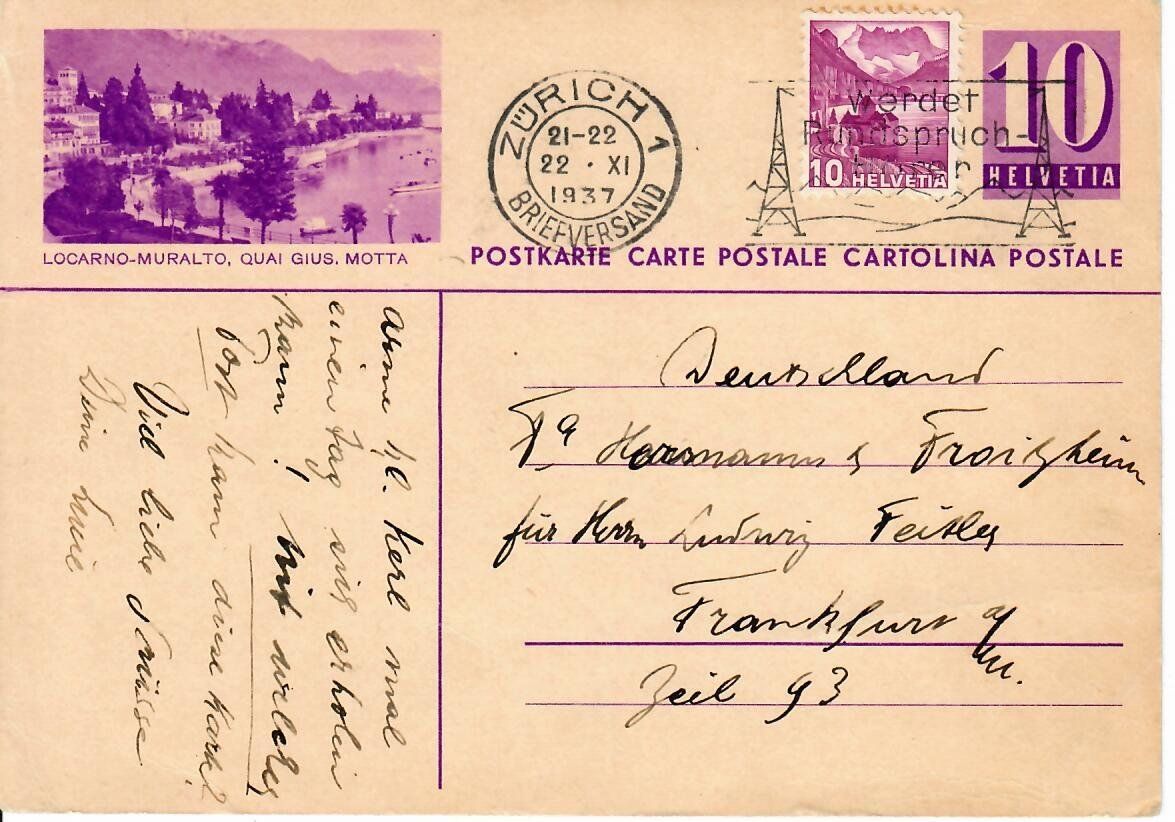 LOCARNO-MURALTO, QUAI GIUS. MOTTA
ZÜRICH 1
21-22
22 · XI
1937
BRIEFVERSAND
Werdet
Rundspruch-
10 HELVETIA
10
HELVETIA
POSTKARTE CARTE POSTALE CARTOLINA POSTALE
arme kl. Kerl mal
einen Tag sich erholen
kann! Mit welcher
Post kam diese Karte?
Viel liebe Grüsse
Deine
Deutschland
Fa Horsmann & Froitzheim
für Herrn Ludwig Feitler
Frankfurt a/M.
Zeil 93